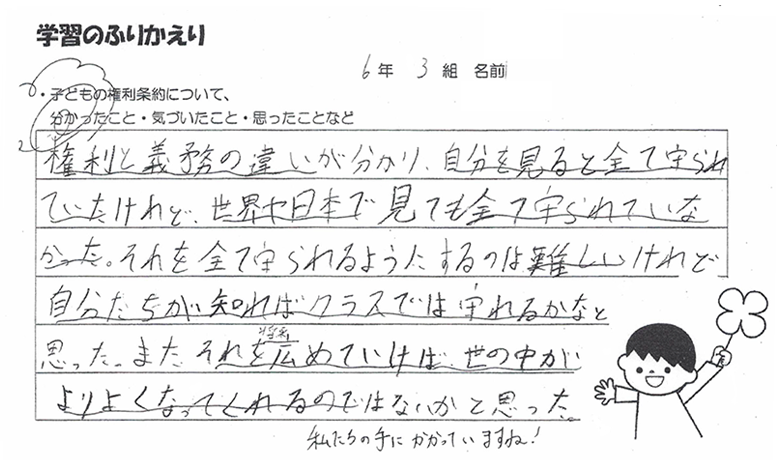 学習のふりかえり
6年 3組 名前
・子どもの権利条約について、
分かったこと・気づいたこと・思ったことなど
権利と義務の違いが分かり、自分を見ると全て守られ
ていたけれど、世界や日本で見ても全て守られていな
かった。それを全て守られるようにするのは難しいけれど
自分たちが知ればクラスでは守れるかなと
思った。また、それを将来広めていけば、世の中が
よりよくなってくれるのではないかと思った。
私たちの手にかかっていますね!